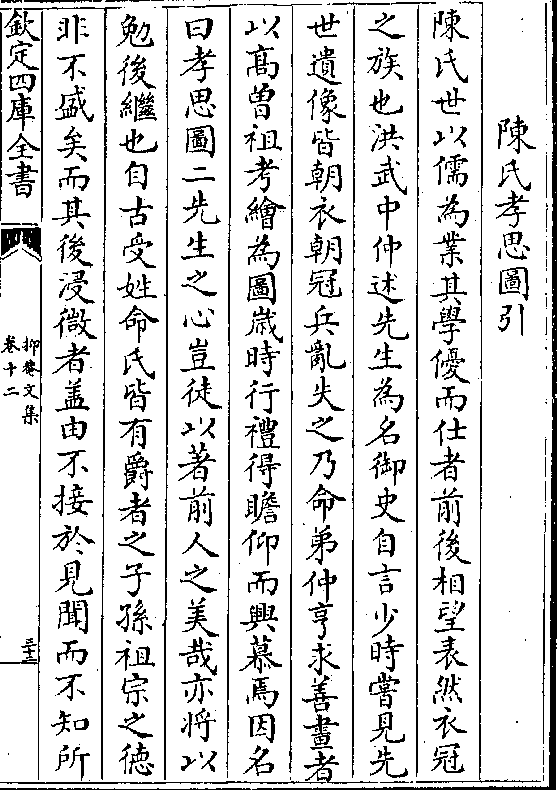 陳氏孝思圖引
陳氏世以儒為業其學優而仕者前後相望表然衣冠
之族也洪武中仲述先生為名御史自言少時嘗見先
世遺像皆朝衣朝冠兵亂失之乃命弟仲亨求善畫者
以髙曽祖考繪為圖嵗時行禮得瞻仰而興慕焉因名
曰孝思圖二先生之心豈徒以著前人之美哉亦將以
勉後繼也自古受姓命氏皆有爵者之子孫祖宗之徳
非不盛矣而其後浸微者盖由不接於見聞而不知所
欽定四庫全書
抑菴文集
卷十二
三十三